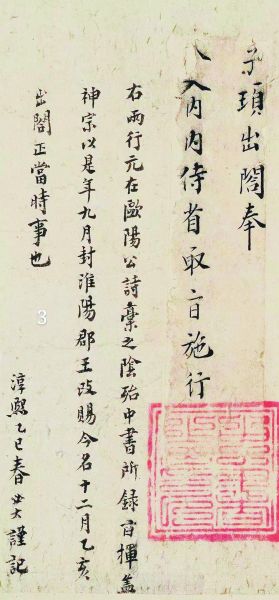 頊出閤奉
入內內侍省取旨施行
右兩行元在歐陽公詩稾之陰殆中書所錄旨揮蓋
神宗以是年九月封淮陽郡王改賜今名十二月乙亥
出閤正當時事也
3
淳熙乙巳春必大謹記